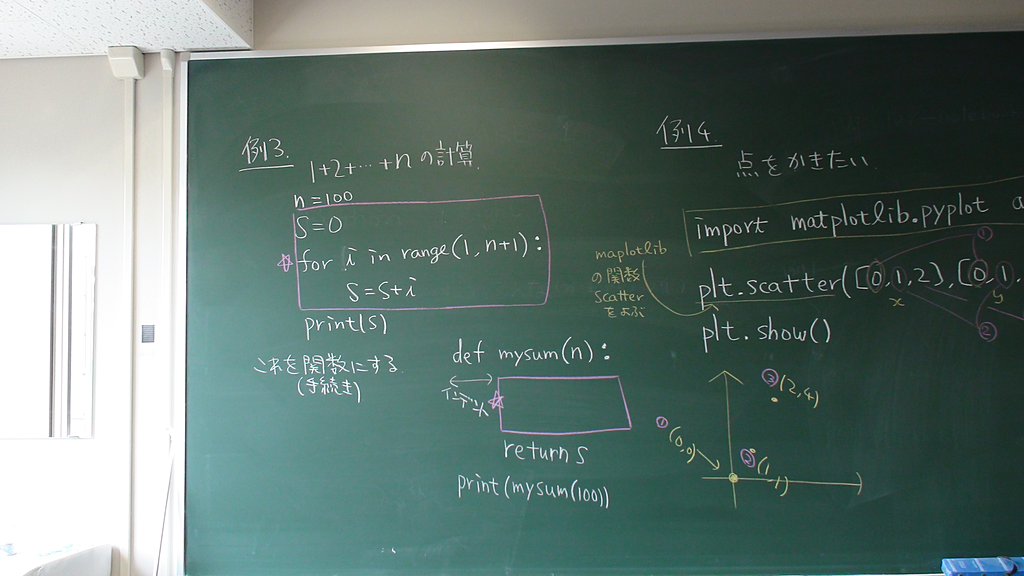 例3.
1+2+…+nの計算
n=100
S=0
for i in range(1, n+1):
S=S+i
print(S)
これを関数にする
(手続き)
def mysum(n):
インデント
return S
print(mysum(100))
例4
点をかきたい
import matplotlib.pyplot a
maplotlib
の関数
scatter
をよぶ
plt.scatter([0,1,2],[0,1,
x
y
①
②
plt.show()
③(2,4)
①
(0,0)
②(1,1)